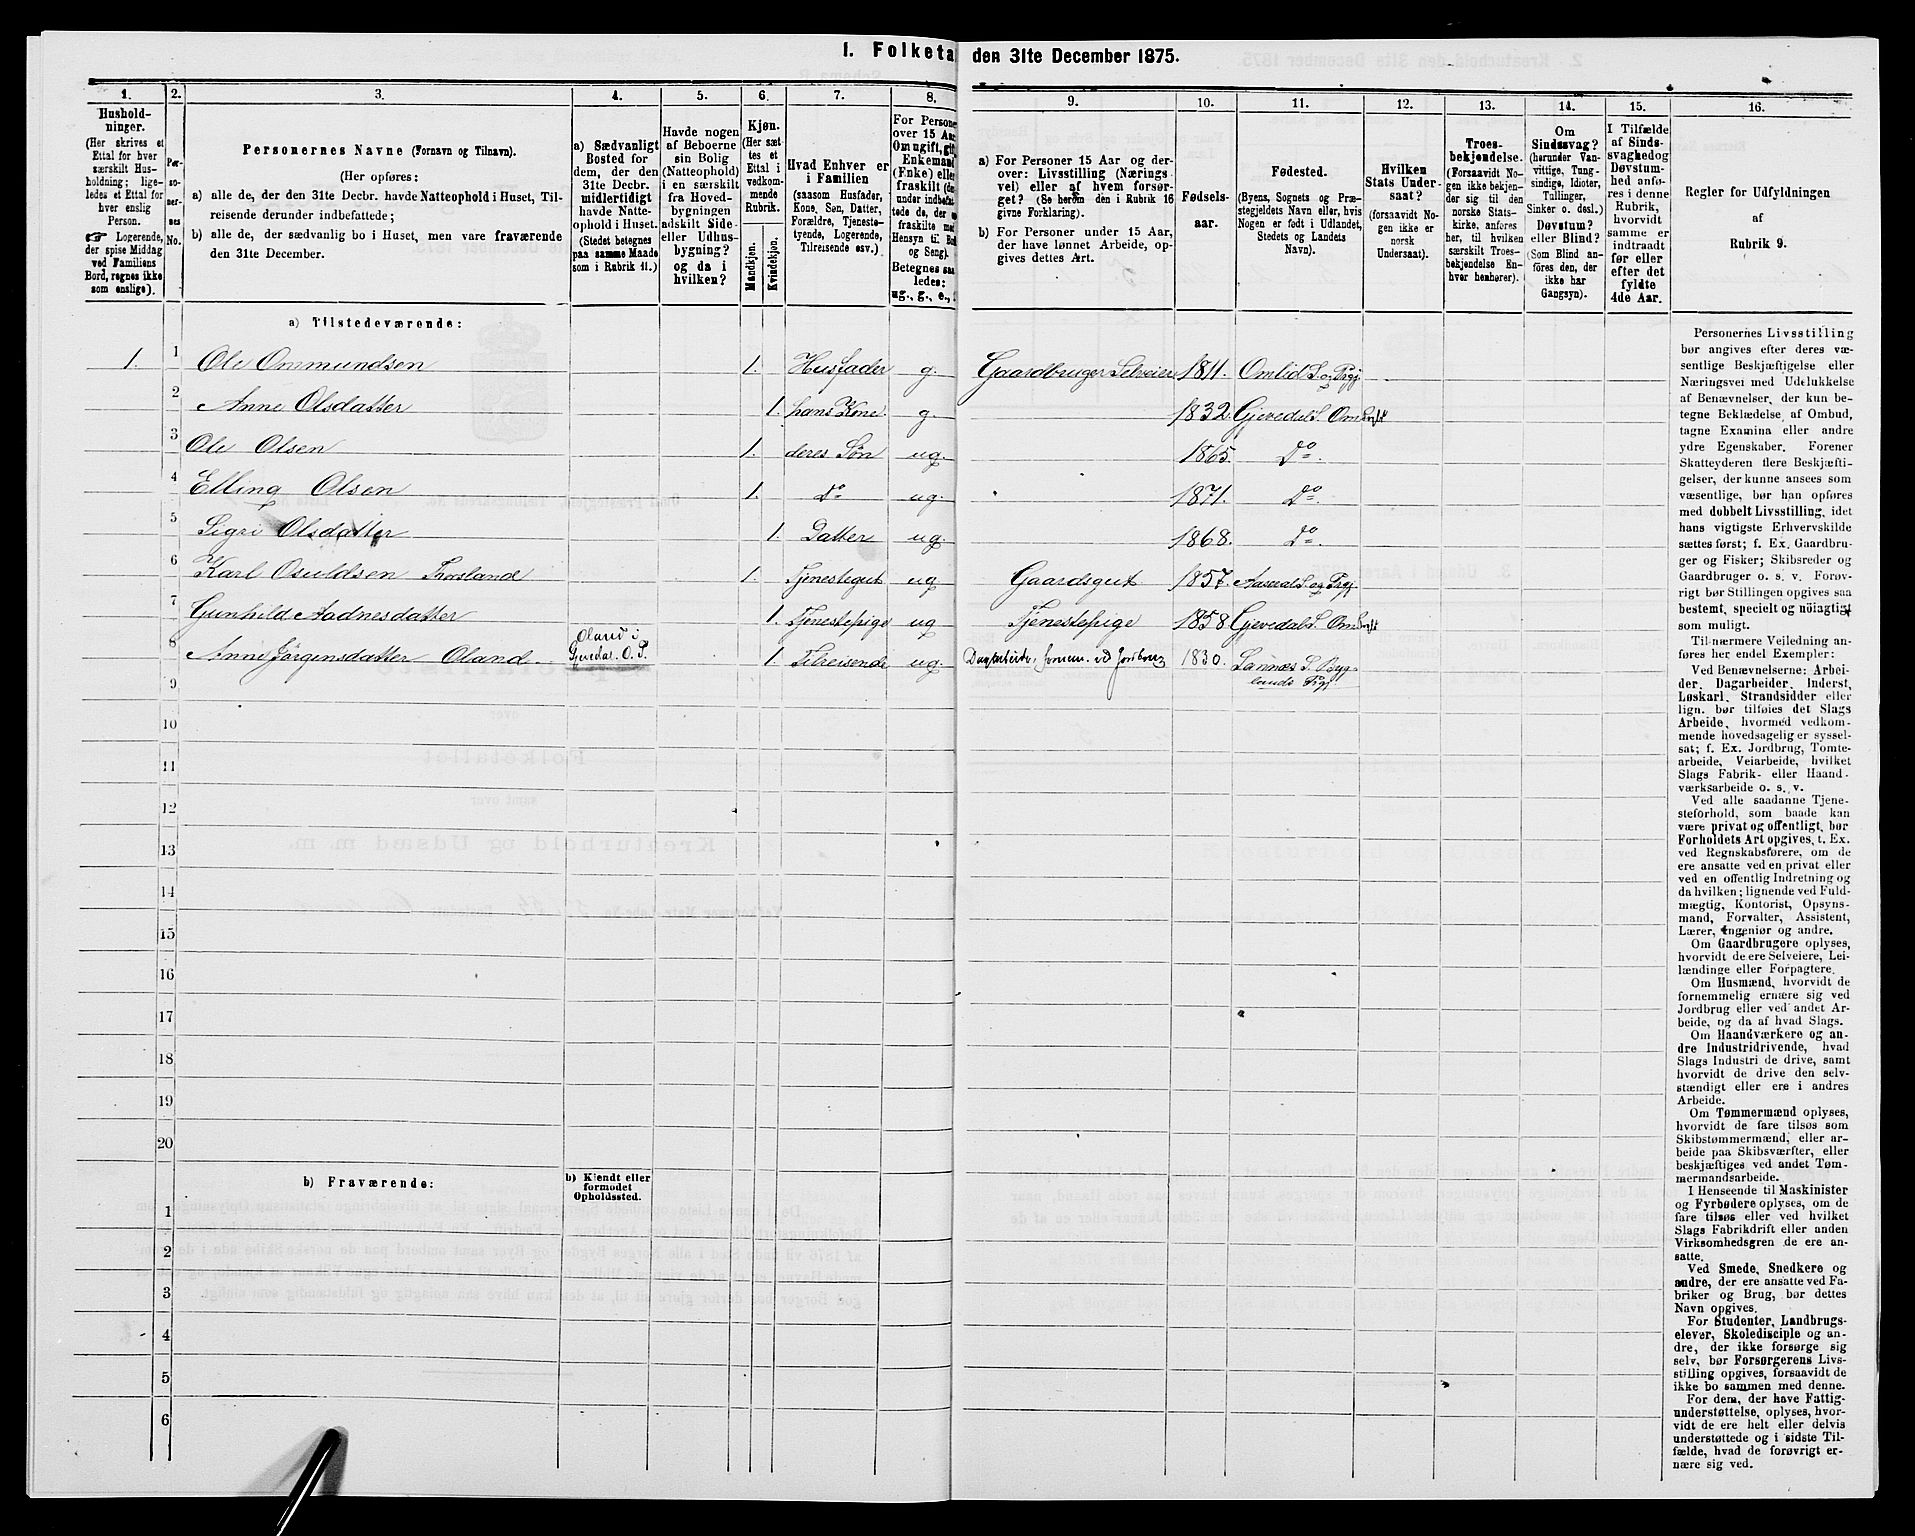 1. Folketa den 31te December 1875.
1. 2. 3. 4. 5. 6. 7. 8. 9. 10. 11. 12. 13. 14. 15. 16.
Hushold-
ninger.
(Her skrives et
Ettal for hver
særskilt Hus-
holdning; lige-
ledes et Ettal for
hver enslig
Person.
☞ Logerende,
der spise Middag
ved Familiens
Bord, regnes ikke
som enslige).
Per-
so-
ner-
nes
No.
Personernes Navne (Fornavn og Tilnavn).
(Her opføres:
a) alle de, der den 31te Decbr. havde Natteophold i Huset, Til-
reisende derunder indbefattede;
b) alle de, der sædvanlig bo i Huset, men vare fraværende
den 31te December.
a) Sædvanligt
Bosted for
dem, der den
31te Decbr.
midlertidigt
havde Natte-
ophold i Huset.
(Stedet betegnes
paa samme Maade
som i Rubrik 11.)
Havde nogen
af Beboerne
sin Bolig
(Natteophold)
i en særskilt
fra Hoved-
bygningen
adskilt Side-
eller Udhus-
bygning?
og da i
hvilken?
Kjøn.
(Her sæt-
tes et
Ettal i
vedkom-
mende
Rubrik.
Mandkjøn.
Kvindekjøn.
Hvad Enhver er
i Familien
(saasom Husfader,
Kone, Søn, Datter,
Forældre, Tjeneste-
tyende, Logerende,
Tilreisende osv.)
For Persone
over 15 Aar
Om ugift, gif
Enkemand
(Enke) eller
fraskilt (der
under indbefat
tede de, der e
fraskilte med
Hensyn til Bo
og Seng).
Betegnes saa
ledes:
ug., g., e., f
a) For Personer 15 Aar og der-
over: Livsstilling (Nærings-
vei) eller af hvem forsør-
get? (Se herom den i Rubrik 16
givne Forklaring).
b) For Personer under 15 Aar,
der have lønnet Arbeide, op-
gives dettes Art.
Fødsels-
aar.
Fødested.
(Byens, Sognets og Præ-
stegjeldets Navn eller, hvis
Nogen er født i Udlandet,
Stedets og Landets
Navn).
Hvilken
Stats Under-
saat?
(forsaavidt No-
gen ikke er
norsk
Undersaat).
Troes-
bekjendelse.
(Forsaavidt No-
gen ikke bekjen-
der sig til den
norske Stats-
kirke, anføres
her, til hvilken
særskilt Troes-
bekjendelse En-
hver henhører).
Om
Sindssvag?
(herunder Van-
vittige, Tung-
sindige, Idioter,
Tullinger,
Sinker o. desl.)
Døvstum?
eller Blind?
(Som Blind an-
føres den, der
ikke har
Gangsyn).
I Tilfælde
af Sinds-
svaghed og
Døvstum-
hed anfø-
res i denne
Rubrik,
hvorvidt
samme er
indtraadt
før eller
efter det
fyldte
4de Aar.
Regler for Udfyldningen
af
Rubrik 9.
a) Tilstedeværende:
1. 1 Ole Ommundsen 1. Husfader g. Gaardbruger Selveier 1811. Omlid S. og Prgj.
2 Anne Olsdatter 1. hans Kone g 1832. Gjevedal S. Om
3 Ole Olsen 1. deres Søn ug. 1865. Do.
4 Elling Olsen 1. Do ug. 1871. Do
5 Sigri Olsdatter 1. Datter ug. 1868. Do.
6 Karl Osuldsen Trosland 1. Tjenestegut ug Gaardsgut 1857. Aaseral S. og Prgj
7 Gunhild Aadnesdatter 1. Tjenestepige ug Tjenestepige 1858 Gjevedal S. Om
8 Anne Jörgensdatter Oland. Oland i Gjevedal O. P. 1. Tilreisende ug. 1830. S. Byg-
lands Prgj
9
10
11
12
13
14
15
16
17
18
19
20
b) Fraværende:
b) Kjendt eller
formodet
Opholdssted.
1
2
3
4
5
6
Personernes Livsstilling
bør angives efter deres væ-
sentlige Beskjæftigelse eller
Næringsvei med Udelukkelse
af Benævnelser, der kun be-
tegne Beklædelse af Ombud,
tagne Examina eller andre
ydre Egenskaber. Forener
Skatteyderen flere Beskjæfti-
gelser, der kunne ansees som
væsentlige, bør han opføres
med dobbelt Livsstilling, idet
hans vigtigste Erhvervskilde
sættes først; f. Ex. Gaardbru-
ger og Fisker; Skibsreder og
Gaardbruger o. s. v. Forøv-
rigt bør Stillingen opgives saa
bestemt, specielt og nöiagtigt
som muligt.
Til nærmere Veiledning an-
føres her endel Exempler:
Ved Benævnelserne: Arbei-
der, Dagarbeider, Inderst,
Løskarl, Strandsidder eller
lign. bør tilføies det Slags
Arbeide, hvormed vedkom-
mende hovedsagelig er syssel-
sat; f. Ex. Jordbrug, Tomte-
arbeide, Veiarbeide, hvilket
Slags Fabrik- eller Haand-
værksarbeide o. s. v.
Ved alle saadanne Tjene-
steforhold, som baade kan
være privat og offentligt, bør
Forholdets Art opgives, t. Ex.
ved Regnskabsførere, om de
ere ansatte ved en privat eller
ved en offentlig Indretning og
da hvilken; lignende ved Fuld-
mægtig, Kontorist, Opsyns-
mand, Forvalter, Assistent,
Lærer, Ingeniør og andre.
Om Gaardbrugere oplyses,
hvorvidt de ere Selveiere, Lei-
lændinge eller Forpagtere.
Om Husmænd, hvorvidt de
fornemmelig ernære sig ved
Jordbrug eller ved andet Ar-
beide, og da af hvad Slags.
Om Haandværkere og an-
dre Industridrivende, hvad
Slags Industri de drive, samt
hvorvidt de drive den selv-
stændigt eller ere i andres
Arbeide.
Om Tømmermænd oplyses,
hvorvidt de fare tilsøs som
Skibstømmermænd, eller ar-
beide paa Skibsværfter, eller
beskjæftiges ved andet Tøm-
mermandsarbeide.
I Henseende til Maskinister
og Fyrbødere oplyses, om de
fare tilsøs eller ved hvilket
Slags Fabrikdrift eller anden
Virksomhedsgren de ere an-
satte.
Ved Smede, Snedkere og
andre, der ere ansatte ved Fa-
briker og Brug, bør dettes
Navn opgives.
For Studenter, Landbrugs-
elever, Skoledisciple og an-
dre, der ikke forsørge sig
selv, bør Forsørgerens Livs-
stilling opgives, forsaavidt de
ikke bo sammen med denne.
For dem, der have Fattig-
understøttelse, oplyses, hvor-
vidt de ere helt eller delvis
understøttede og i sidste Til-
fælde, hvad de forøvrigt er-
nære sig ved.